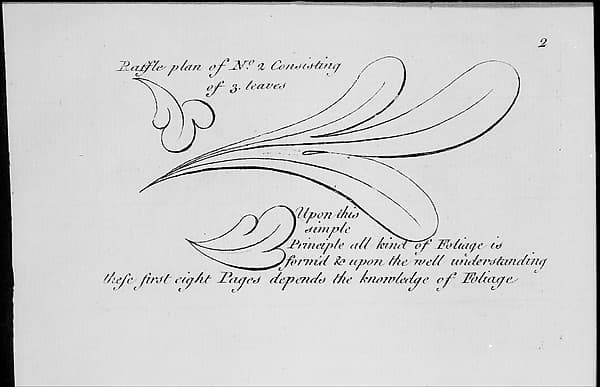 2
Raffle plan of Nº. 2 Consisting
of 3. leaves
Upon this
simple
Principle all kind of Foliage is
form'd & upon the well understanding
these first eight Pages depends the knowledge of Foliage